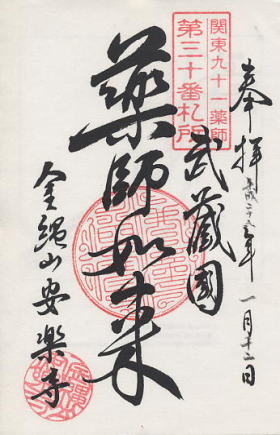 奉拝
平成二十五年 一月十二日
関東九十一薬師
第三十番札所
武蔵國
薬師如来
金縄山安楽寺